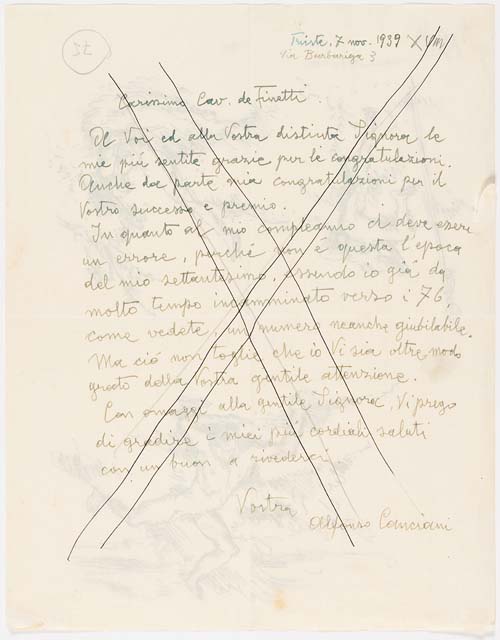 75
Trieste, 7 nov. 1939 XVIII
Via Barbariga 3
Carissimo Cav. de Finetti
A Voi ed alla Vostra distinta Signora le
mie più sentite grazie per le congratulazioni.
Anche da parte mia congratulazioni per il
Vostro successo e premio.
In quanto al mio compleanno ci deve essere
un errore, perché non è questa l'epoca
del mio settantesimo, essendo io già da
molto tempo incamminato verso i 76,
come vedete, un numero neanche giubilabile.
Ma ciò non toglie che io Vi sia oltremodo
grato della Vostra gentile attenzione.
Con omaggi alla gentile Signora, Vi prego
di gradire i miei più cordiali saluti
con un buon a rivederci
Vostro
Alfonso Canciani